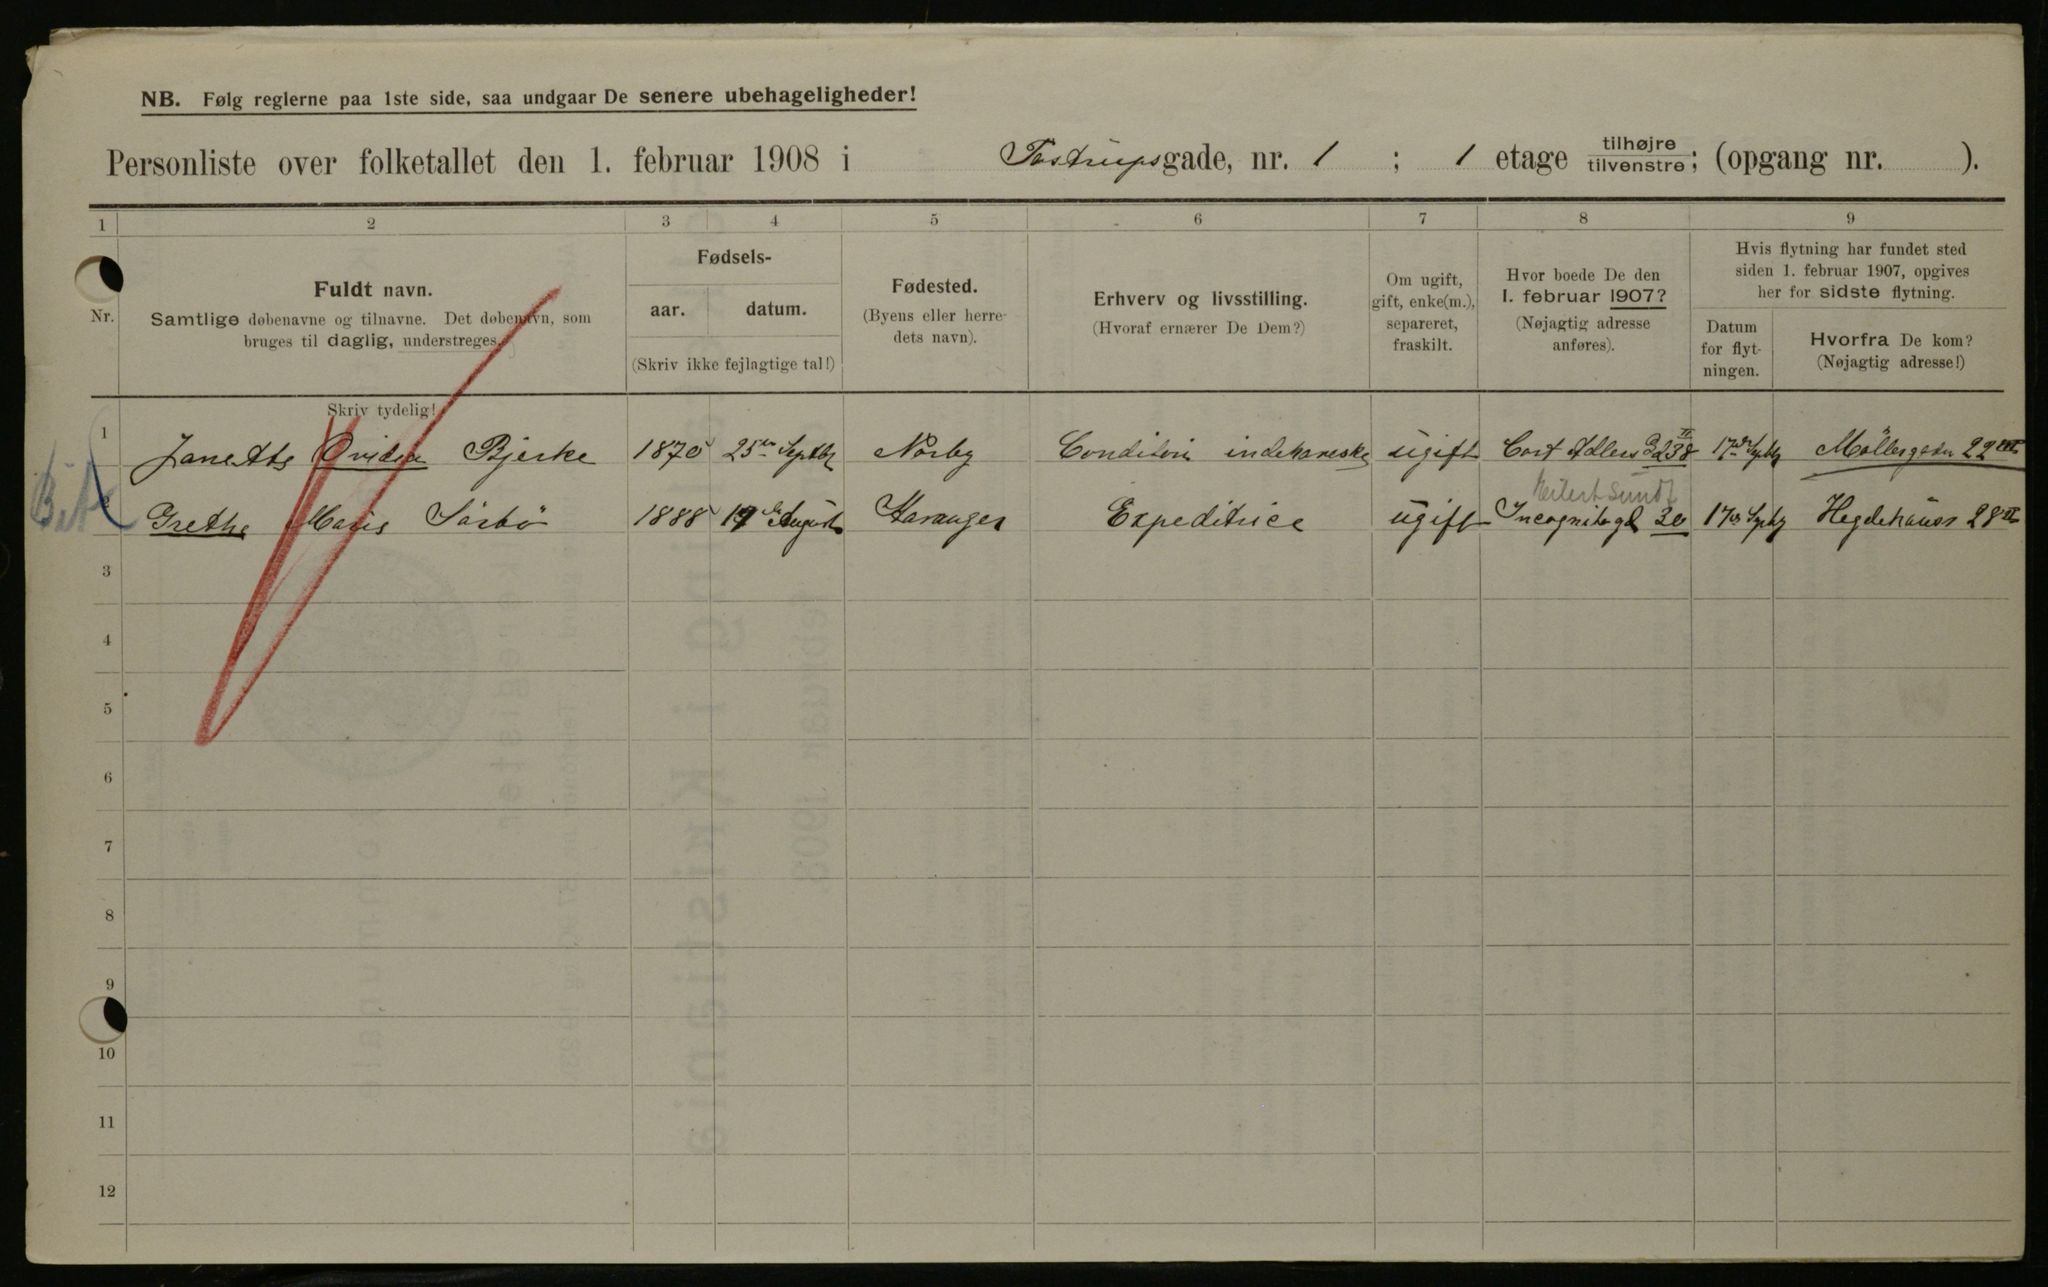 NB. Følg reglerne paa 1ste side, saa undgaar De senere ubehageligheder!
Personliste over folketallet den 1. februar 1908 i Tostrupsgade, nr. 1 ; 1 etage tilhøjre tilvenstre; (opgang nr. ).
1 2 3 4 5 6 7 8 9
Nr.
Fuldt navn.
Samtlige døbenavne og tilnavne. Det døbenavn, som
bruges til daglig, understreges.
Skriv tydelig!
Fødsels-
aar. datum.
(Skriv ikke fejlagtige tal!)
Fødested.
(Byens eller herre-
dets navn).
Erhverv og livsstilling.
(Hvoraf ernærer De Dem?)
Om ugift,
gift, enke(m.),
separeret,
fraskilt.
Hvor boede De den
1. februar 1907?
(Nøjagtig adresse
anføres).
Hvis flytning har fundet sted
siden 1. februar 1907, opgives
her for sidste flytning.
Datum
for flyt-
ningen.
Hvorfra De kom?
(Nøjagtig adresse!)
1 Janette Ovidia Bjerke 1870 25de Septbr Nørby Conditori indehaverske ugift Cort Adlers Gd 38 II 17de Septbr Möllergaden 22 III
Eilert Sundt
2 Grethe Marie Sörbö 1888 19 August Stavanger Expeditrice ugift Incognitogd 30 17de Septbr Hegdehausv 28 III
3
4
5
6
7
8
9
10
11
12